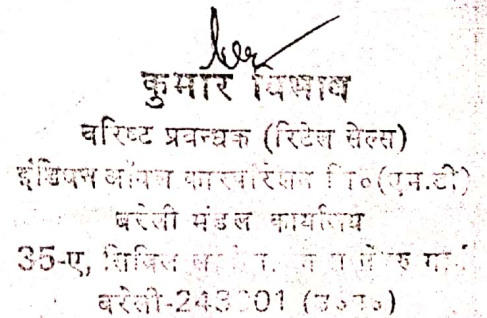 कुमार विभाव
वरिष्ट प्रबन्धक (रिटेल सेल्स)
इंडियन ऑयल कारपोरेशन लि०(एम.टी)
बरेली मंडल कार्यालय
35-ए, सिविल
बरेली-243001 (उ०प्र०)